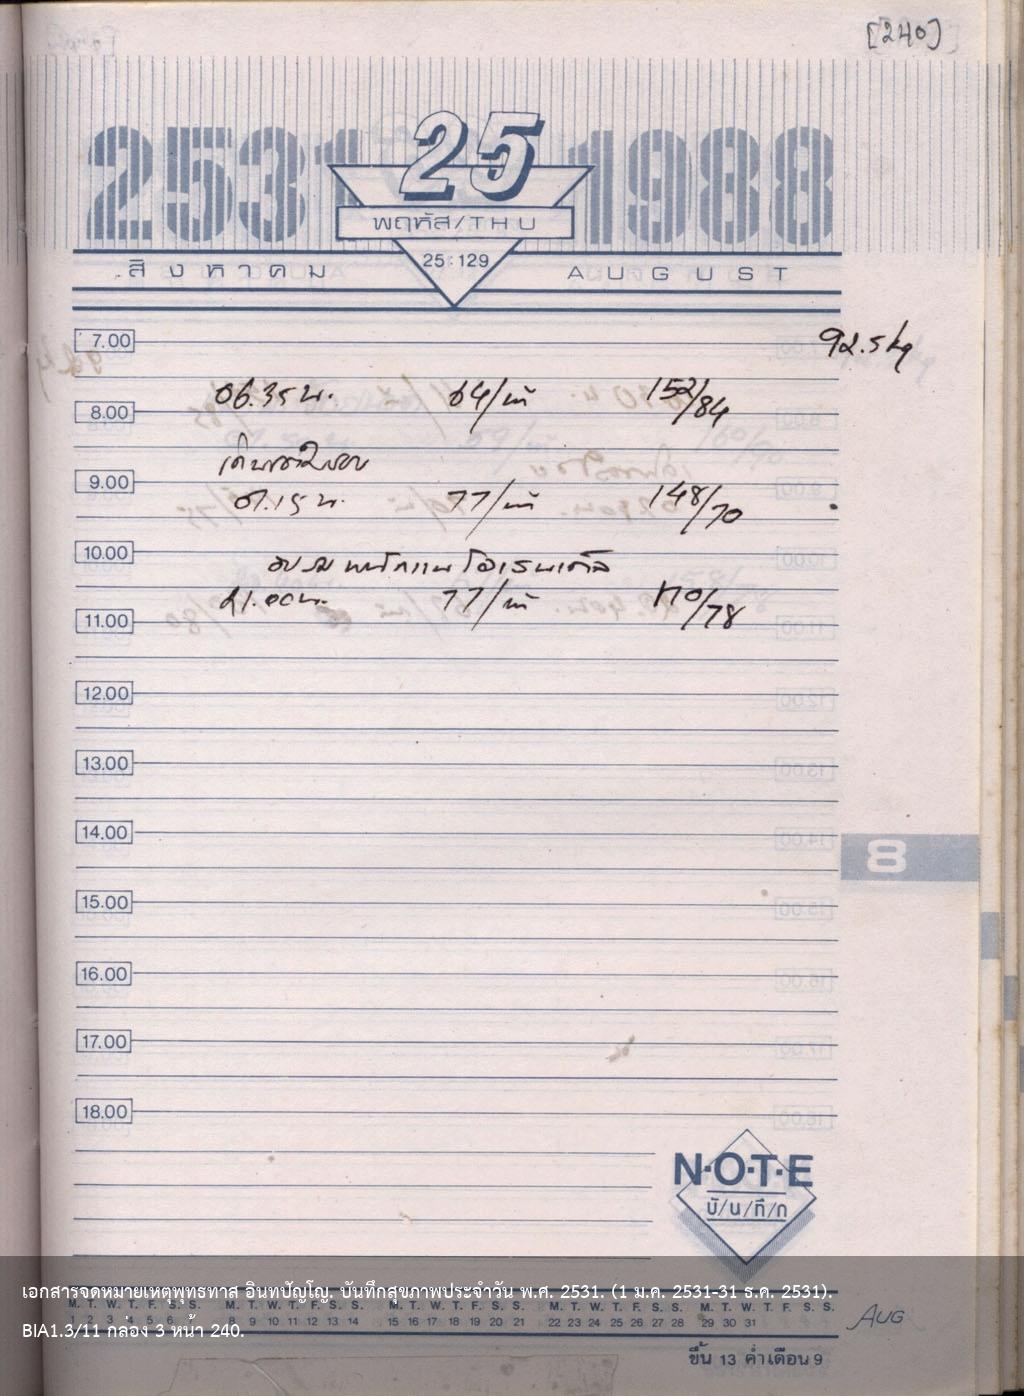 [240]
2531 25 1988
พฤหัส/THU
สิงหาคม 25:129 AUGUST
7.00 92.5 kg
06.35 น. 64/นที 152/84
8.00
เดินรอบ
9.00
07.15 น. 77/นที 148/70
10.00
อบรม
21.00 น. 77/นที 170/78
11.00
12.00
13.00
14.00
8
15.00
16.00
17.00
18.00
N·O·T·E
บั/น/ทึ/ก
เอกสารจดหมายเหตุพุทธทาส อินทปัญโญ. บันทึกสุขภาพประจำวัน พ.ศ. 2531. (1 ม.ค. 2531-31 ธ.ค. 2531).
M. T. W. T. F. S. S. M. T. W. T. F. S. S. M. T. W. T. F. S. S. M. T. W. T. F. S. S. M. T. W. T. F. S. S.
1 2 3 4 5 6 7 8 9 10 11 12 13 14 15 16 17 18 19 20 21 22 23 24 25 26 27 28 29 30 31 AUG
BIA1.3/11 กล่อง 3 หน้า 240.
ขึ้น 13 ค่ำเดือน 9